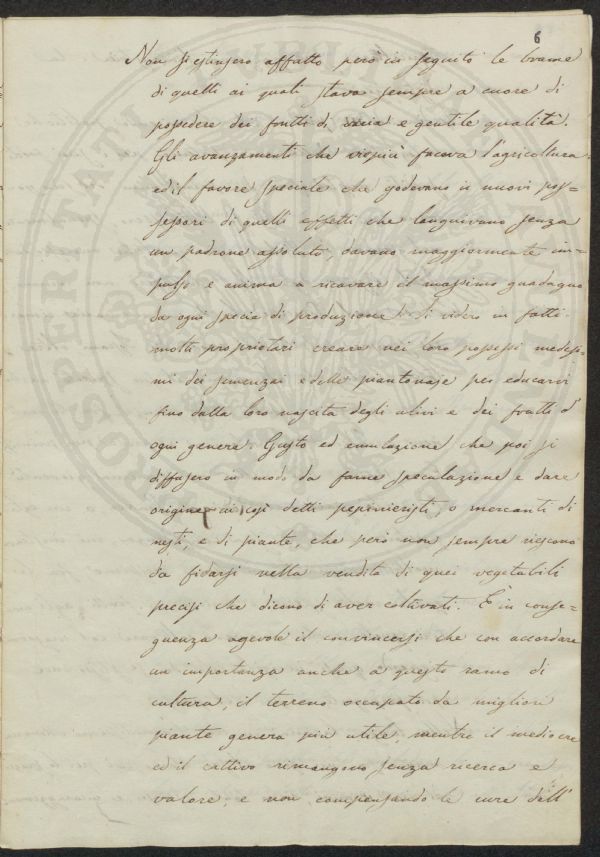 6
Non si estinsero affatto però in seguito le brame
di quelli ai quali stava sempre a cuore di
possedere dei frutti di varia e gentile qualità.
Gli avanzamenti che viepiù faceva l'agricoltura
ed il favore speciale che godevano i nuovi pos=
sessori di quelli effetti che languivano senza
un padrone assoluto, davano maggiormente im=
pulso e anima a ricavare il massimo guadagno
da ogni specia di produzione. Si videro in fatti
molti proprietari creare nei loro possessi medesi=
mi dei semenzai e delle piantonaje per educarvi
fino dalla loro nascita degli ulivi e dei frutti d'
ogni genere. Gusto ed emulazione che poi si
diffusero in modo da farne speculazione e dare
origine ai così detti pepinieristi, o mercanti di
nesti, e di piante, che però non sempre riescono
da fidarsi nella vendita di quei vegetabili
precisi che dicono di aver coltivati. È in conse=
guenza agevole il convincersi che con accordare
un importanza anche a questo ramo di
cultura, il terreno occupato da migliori
piante genera più utile, mentre il mediocre
ed il cattivo rimangono senza ricerca e
valore, e non compensando le cure dell'
PROSPERITATI PUBLICAE